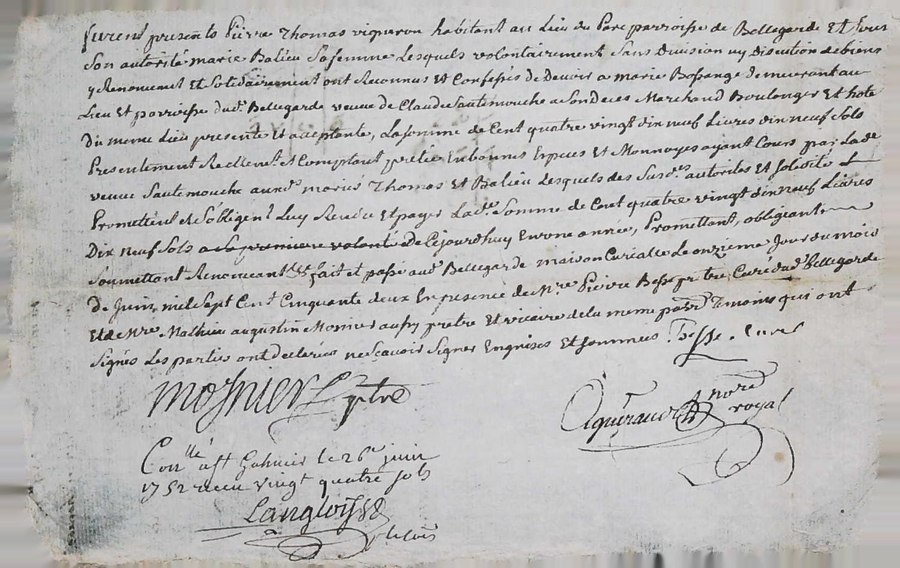 furent presents Pierre Thomas vigneron habitant au Lieu du Parc parroisse de Bellegarde Et sous
Son autorité marie Balieu Sa femme Lesquels volontairement Sans Division ny Discution de biens
y Renoncent Et Solidairement ont Reconnus Et Confessés de Devoir a marie Bossange demeurant au
Lieu Et parroisse dud. Bellegarde veuve de Claude Sautemouche a Son deces Marchand Boulanger Et hote
Du meme Lieu presente Et acceptante, La somme de Cent quatre vingt dix neuf Livres dix neuf Sols
Presentement Reellement Et Comptant pretée En bonnes Especes Et Monnoyes ayant Cours par La de
veuve Sautemouche auxd. mariés Thomas Et Balieu Lesquels des Susd. autorités Et solidité
Promettent Et S'obligent Luy Rendre Et payer Lade. Somme de Cent quatre vingt dix neuf Livres
Dix neuf Sols a Sa premiere volonté de Cejourdhuy En une année, Promettant, obligeant
Soumettant Renonceant &a fait Et passé aud. Bellegarde maison Curialle Le onzieme Jour du mois
De Juin, mil Sept Cent Cinquante deux En presence de Mre Pierre Besse pretre Curé dud. Bellegarde
Et de Mre Mathieu augustin Mosnier aussy pretre Et vicaire de la meme parr. Temoins qui ont
Signés Les parties ont declarées ne Scavoir Signer Enquises Et sommées Besse curé
Mosnier ptre
nore royal
Conllé a St Galmier le 26e juin
1752 reçu vingt quatre sols
Langloys